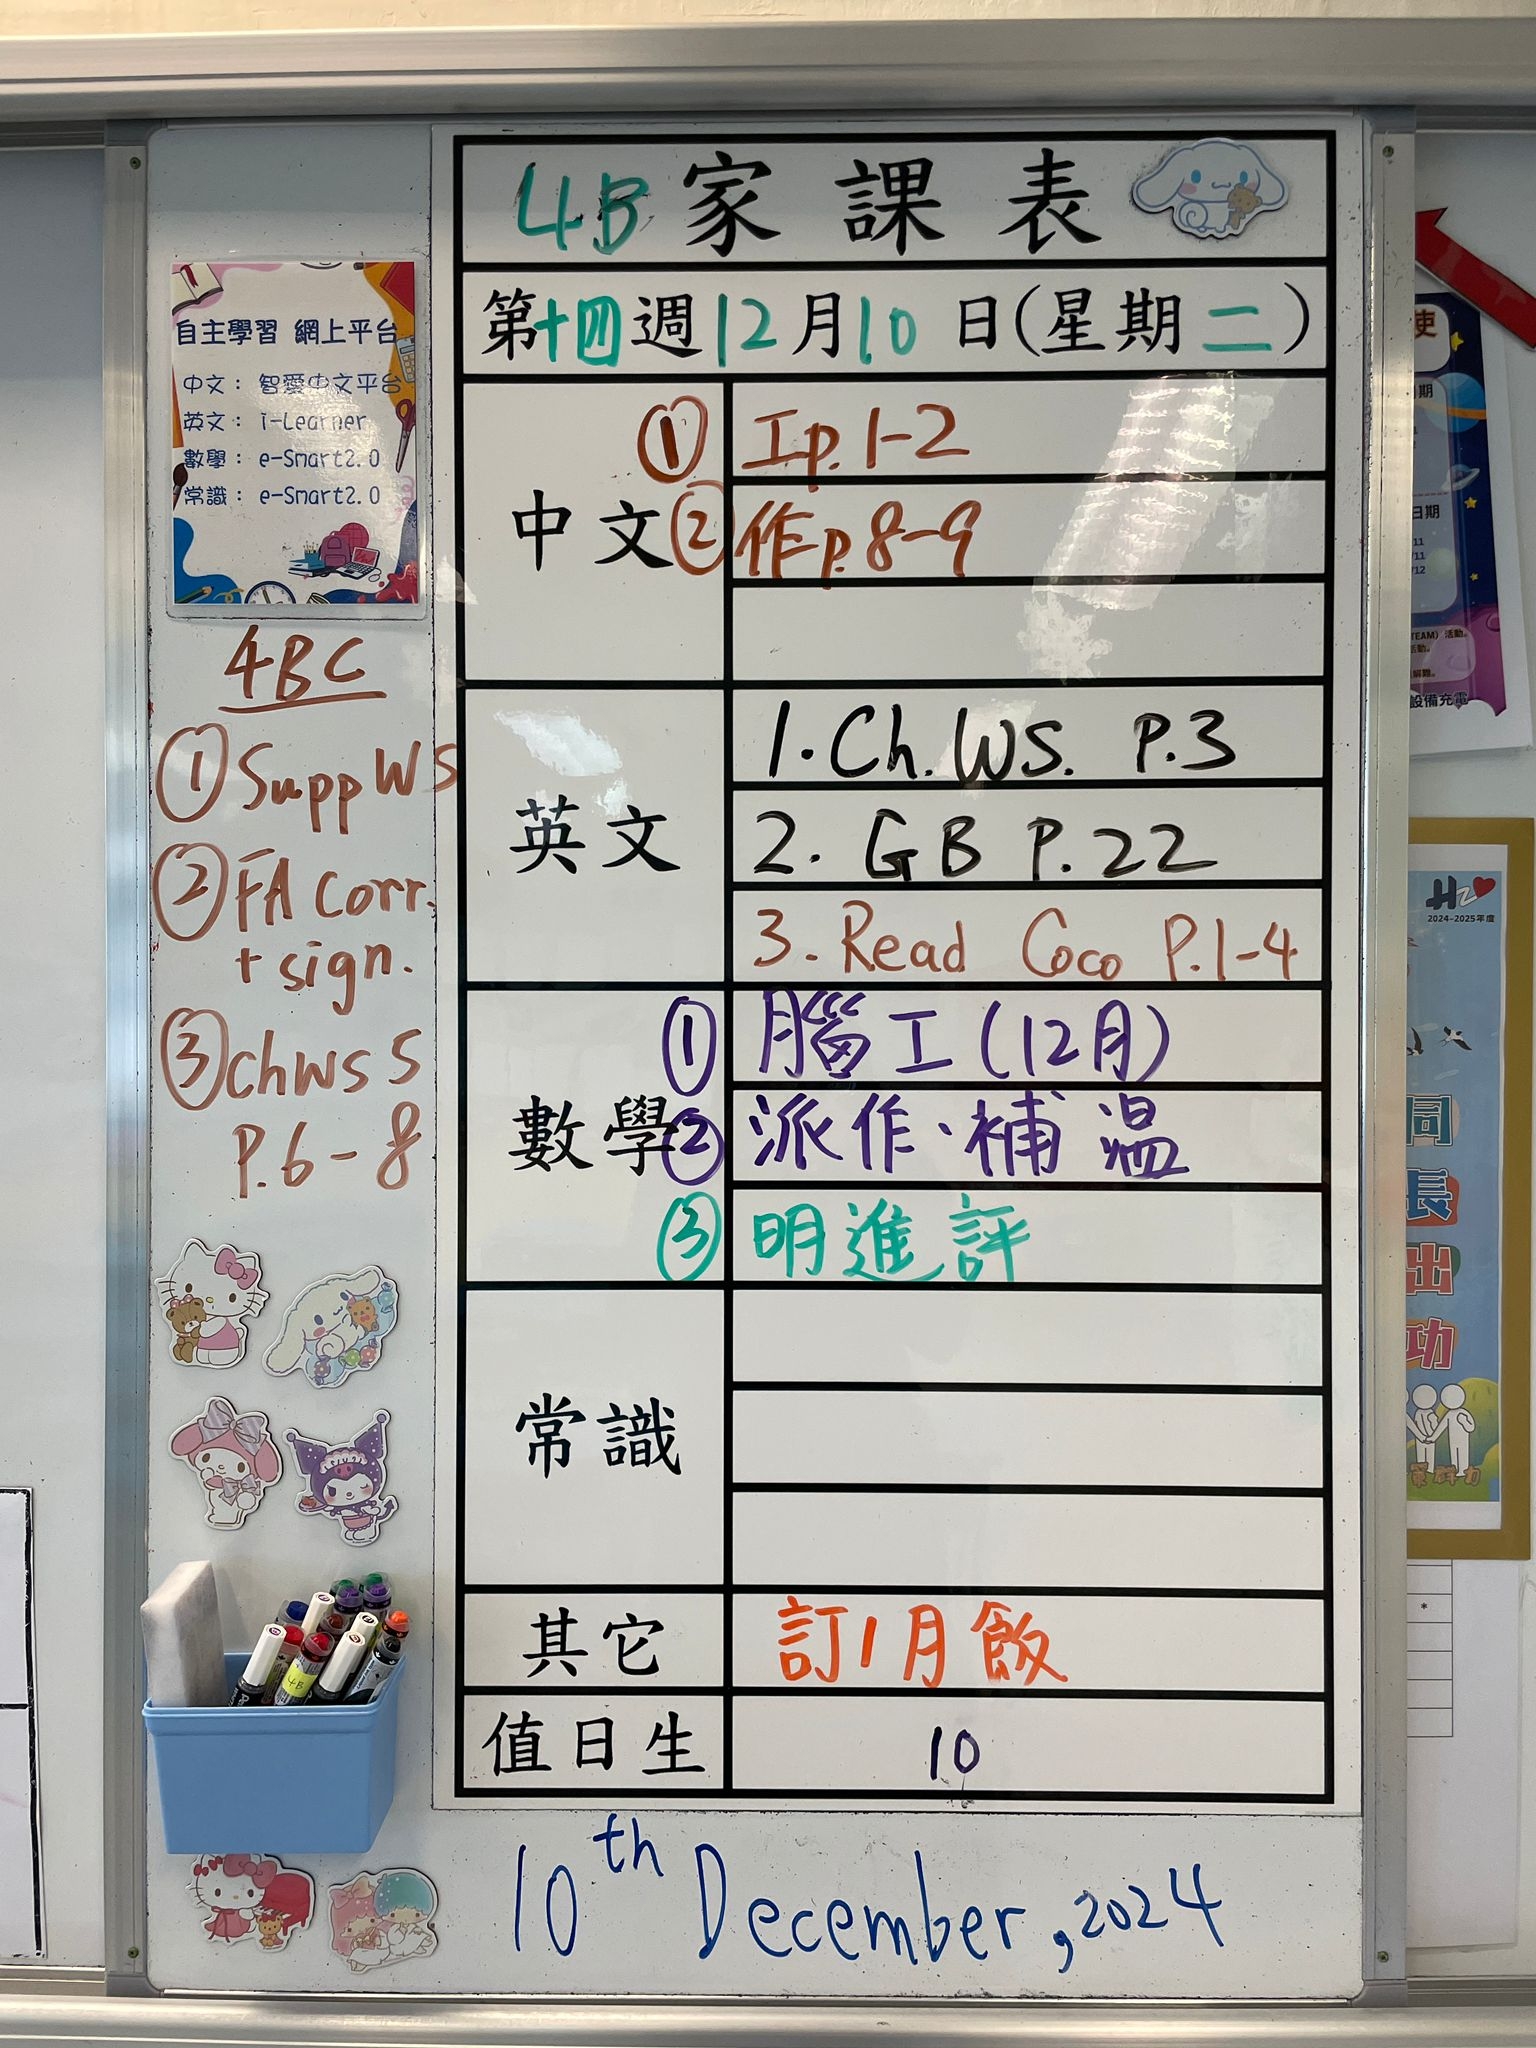 4B 家課表
第十四週 12月10日(星期二)
中文
① 工p.1-2
② 作p.8-9
英文
1. Ch.WS. P.3
2. GB P.22
3. Read Coco P.1-4
數學
① 腦工(12月)
② 派作、補溫
③ 明進評
常識
其它
訂1月飯
值日生
10
10th December, 2024
自主學習 網上平台
中文： 智愛中文平台
英文： i-Learner
數學： e-Smart2.0
常識： e-Smart2.0
4BC
① Supp WS
② FA Corr.
+ sign.
③ ChWS 5
P.6-8
4B
2024-2025年度
同
長
出
功
期
日期
設備充電